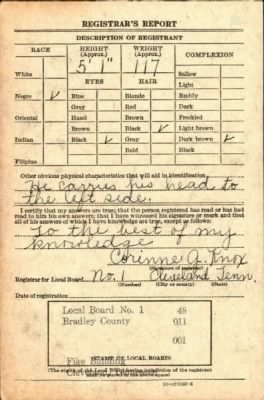 REGISTRAR'S REPORT
DESCRIPTION OF REGISTRANT
RACE HEIGHT (Approx.) WEIGHT (Approx.) COMPLEXION
5' 1" 117
White EYES HAIR Sallow
Light
Negro ✓ Blue Blonde Ruddy
Gray Red Dark
Oriental Hazel Brown Freckled
Brown Black ✓ Light brown
Indian Black ✓ Gray Dark brown ✓
Bald Black
Filipino
Other obvious physical characteristics that will aid in identification
He carries his head to
the left side.
I certify that my answers are true; that the person registered has read or has had
read to him his own answers; that I have witnessed his signature or mark and that
all of his answers of which I have knowledge are true, except as follows:
To the best of my
knowledge
Corinne A. Knox
(Signature of registrar)
Registrar for Local Board No. 1 Cleveland Tenn.
(Number) (City or county) (State)
Date of registration
Local Board No. 1 48
Bradley County 011
001
Fike Building
(STAMP OF LOCAL BOARD)